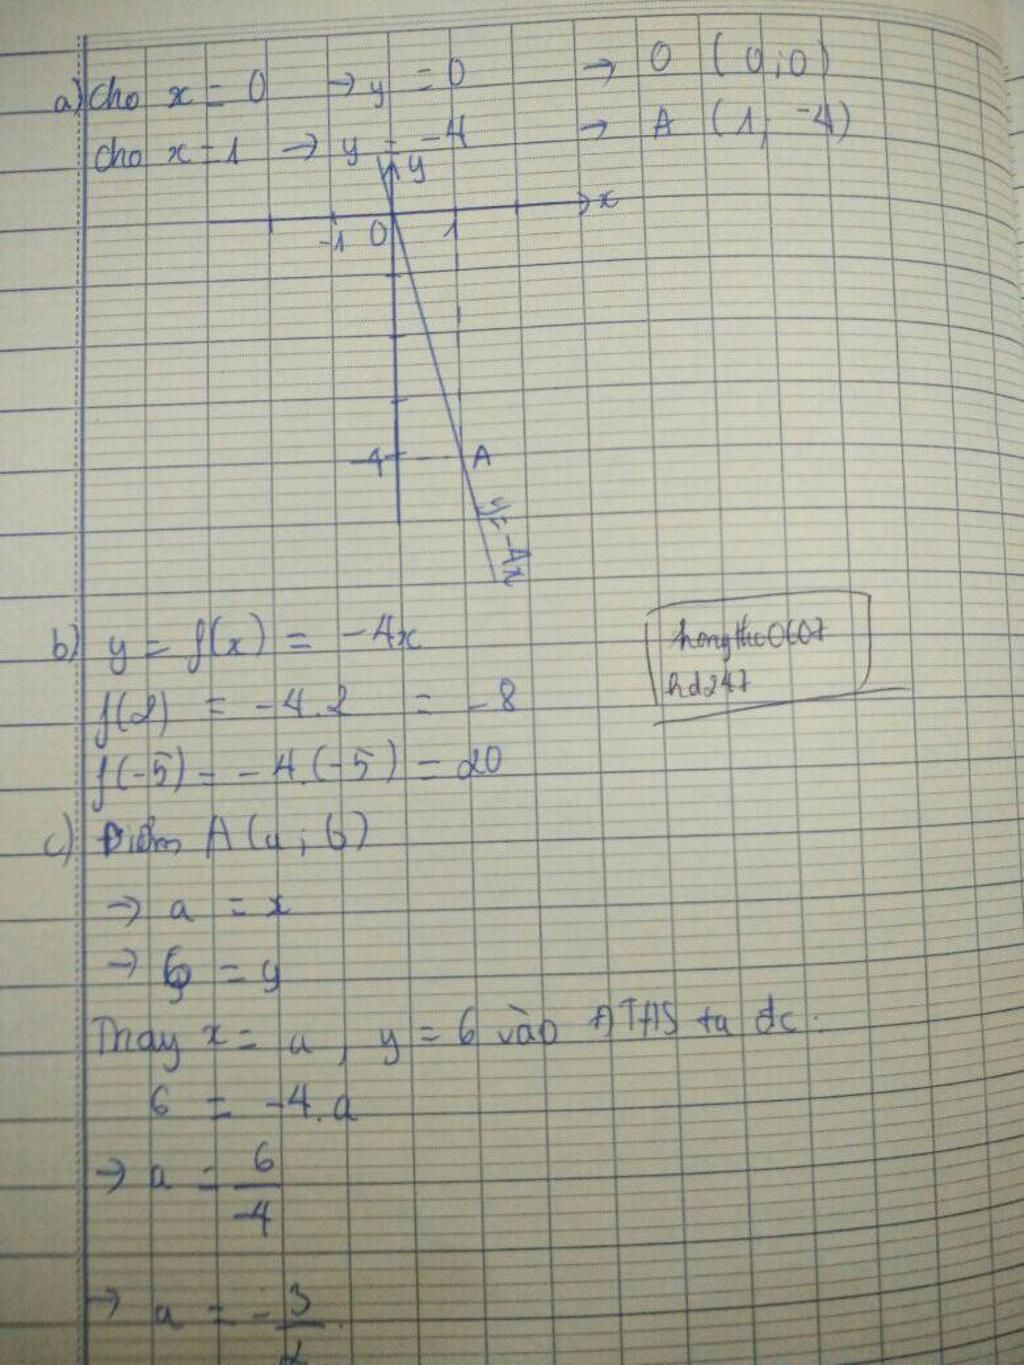 a) Cho x = 0 → y = 0 → O (0;0)
Cho x = 1 → y = -4 → A (1; -4)
y
x
-1 O 1
-4 A
y = -4x
b) y = f(x) = -4x
f(2) = -4.2 = -8
f(-5) = -4.(-5) = 20
hongtho0607
hd247
c) Điểm A(a; 6)
→ a = x
→ 6 = y
Thay x = a, y = 6 vào ĐTHS ta đc:
6 = -4.a
→ a = 6/-4
→ a = -3/2